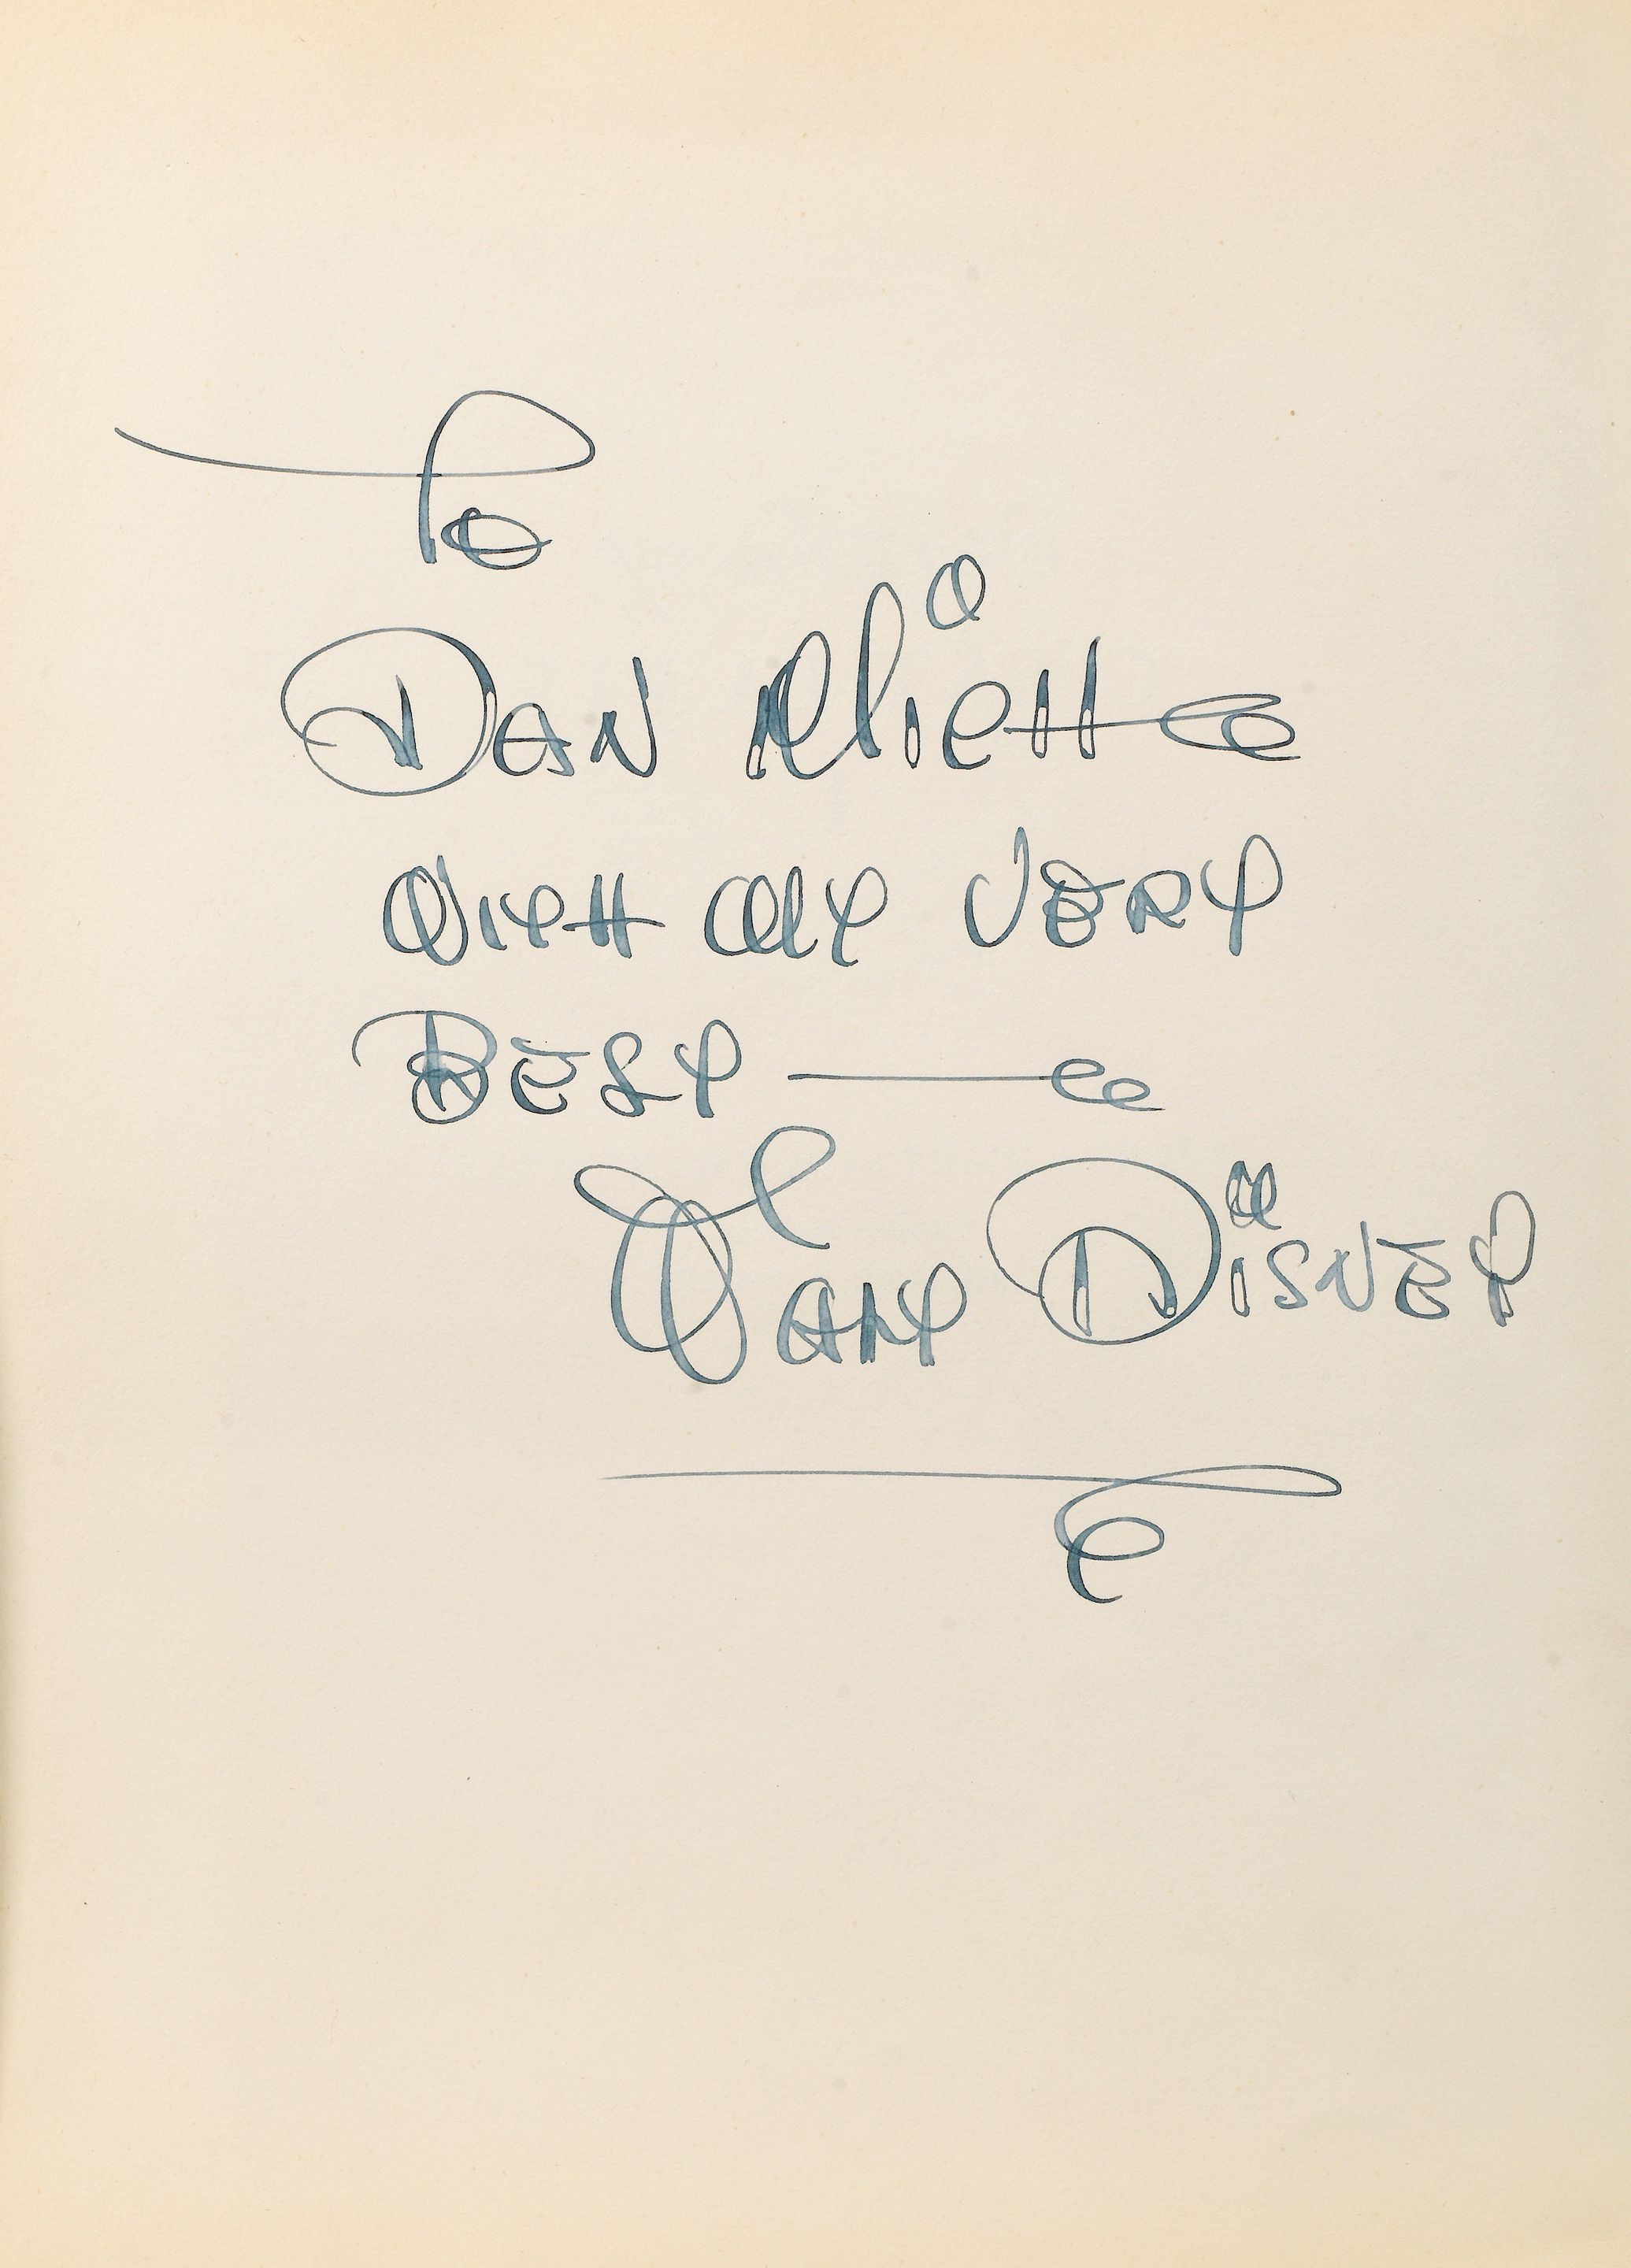 To
DAN MICH
WITH MY VERY
BEST —
WALT DISNEY